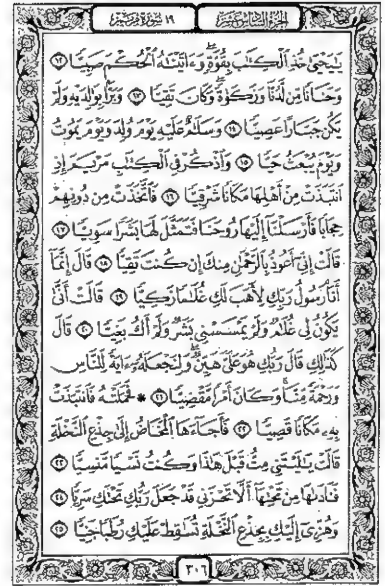 الجزء السادس عشر ١٩ سورة مريم
يَٰيَحْيَىٰ خُذِ ٱلْكِتَٰبَ بِقُوَّةٍۖ وَءَاتَيْنَٰهُ ٱلْحُكْمَ صَبِيًّا ١٢
وَحَنَانًا مِّن لَّدُنَّا وَزَكَوٰةًۖ وَكَانَ تَقِيًّا ١٣ وَبَرًّۢا بِوَٰلِدَيْهِ وَلَمْ
يَكُن جَبَّارًا عَصِيًّا ١٤ وَسَلَٰمٌ عَلَيْهِ يَوْمَ وُلِدَ وَيَوْمَ يَمُوتُ
وَيَوْمَ يُبْعَثُ حَيًّا ١٥ وَٱذْكُرْ فِى ٱلْكِتَٰبِ مَرْيَمَ إِذِ
ٱنتَبَذَتْ مِنْ أَهْلِهَا مَكَانًا شَرْقِيًّا ١٦ فَٱتَّخَذَتْ مِن دُونِهِمْ
حِجَابًا فَأَرْسَلْنَآ إِلَيْهَا رُوحَنَا فَتَمَثَّلَ لَهَا بَشَرًا سَوِيًّا ١٧
قَالَتْ إِنِّىٓ أَعُوذُ بِٱلرَّحْمَٰنِ مِنكَ إِن كُنتَ تَقِيًّا ١٨ قَالَ إِنَّمَآ
أَنَا۠ رَسُولُ رَبِّكِ لِأَهَبَ لَكِ غُلَٰمًا زَكِيًّا ١٩ قَالَتْ أَنَّىٰ
يَكُونُ لِى غُلَٰمٌ وَلَمْ يَمْسَسْنِى بَشَرٌ وَلَمْ أَكُ بَغِيًّا ٢٠ قَالَ
كَذَٰلِكِ قَالَ رَبُّكِ هُوَ عَلَىَّ هَيِّنٌۖ وَلِنَجْعَلَهُۥٓ ءَايَةً لِّلنَّاسِ
وَرَحْمَةً مِّنَّاۚ وَكَانَ أَمْرًا مَّقْضِيًّا ٢١ * فَحَمَلَتْهُ فَٱنتَبَذَتْ
بِهِۦ مَكَانًا قَصِيًّا ٢٢ فَأَجَآءَهَا ٱلْمَخَاضُ إِلَىٰ جِذْعِ ٱلنَّخْلَةِ
قَالَتْ يَٰلَيْتَنِى مِتُّ قَبْلَ هَٰذَا وَكُنتُ نَسْيًا مَّنسِيًّا ٢٣
فَنَادَىٰهَا مِن تَحْتِهَآ أَلَّا تَحْزَنِى قَدْ جَعَلَ رَبُّكِ تَحْتَكِ سَرِيًّا ٢٤
وَهُزِّىٓ إِلَيْكِ بِجِذْعِ ٱلنَّخْلَةِ تُسَٰقِطْ عَلَيْكِ رُطَبًا جَنِيًّا ٢٥
٣٠٦